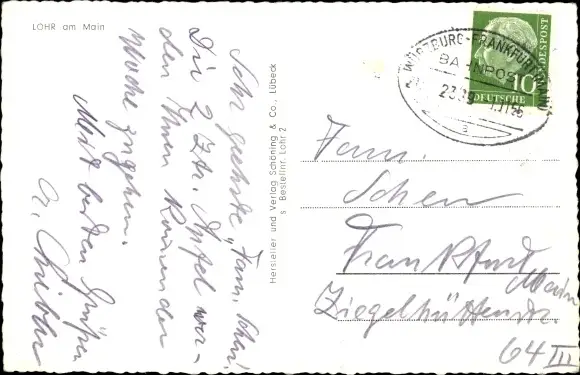 LOHR am Main
Sehr geehrte Fam. Schen!
Die 2 Ztr. Äpfel wer-
den Ihnen kommenden
Woche zugehen.
Mit besten Grüßen
Hersteller und Verlag Schöning & Co., Lübeck
s Bestellnr. Lohr 2
WÜRZBURG-FRANKFURT (MAIN)
BAHNPOST
2339
1.11.56
s
DEUTSCHE
BUNDESPOST
10
Fam.
Schen
Frankfurt
Main
Ziegelhüttenstr.
64 III